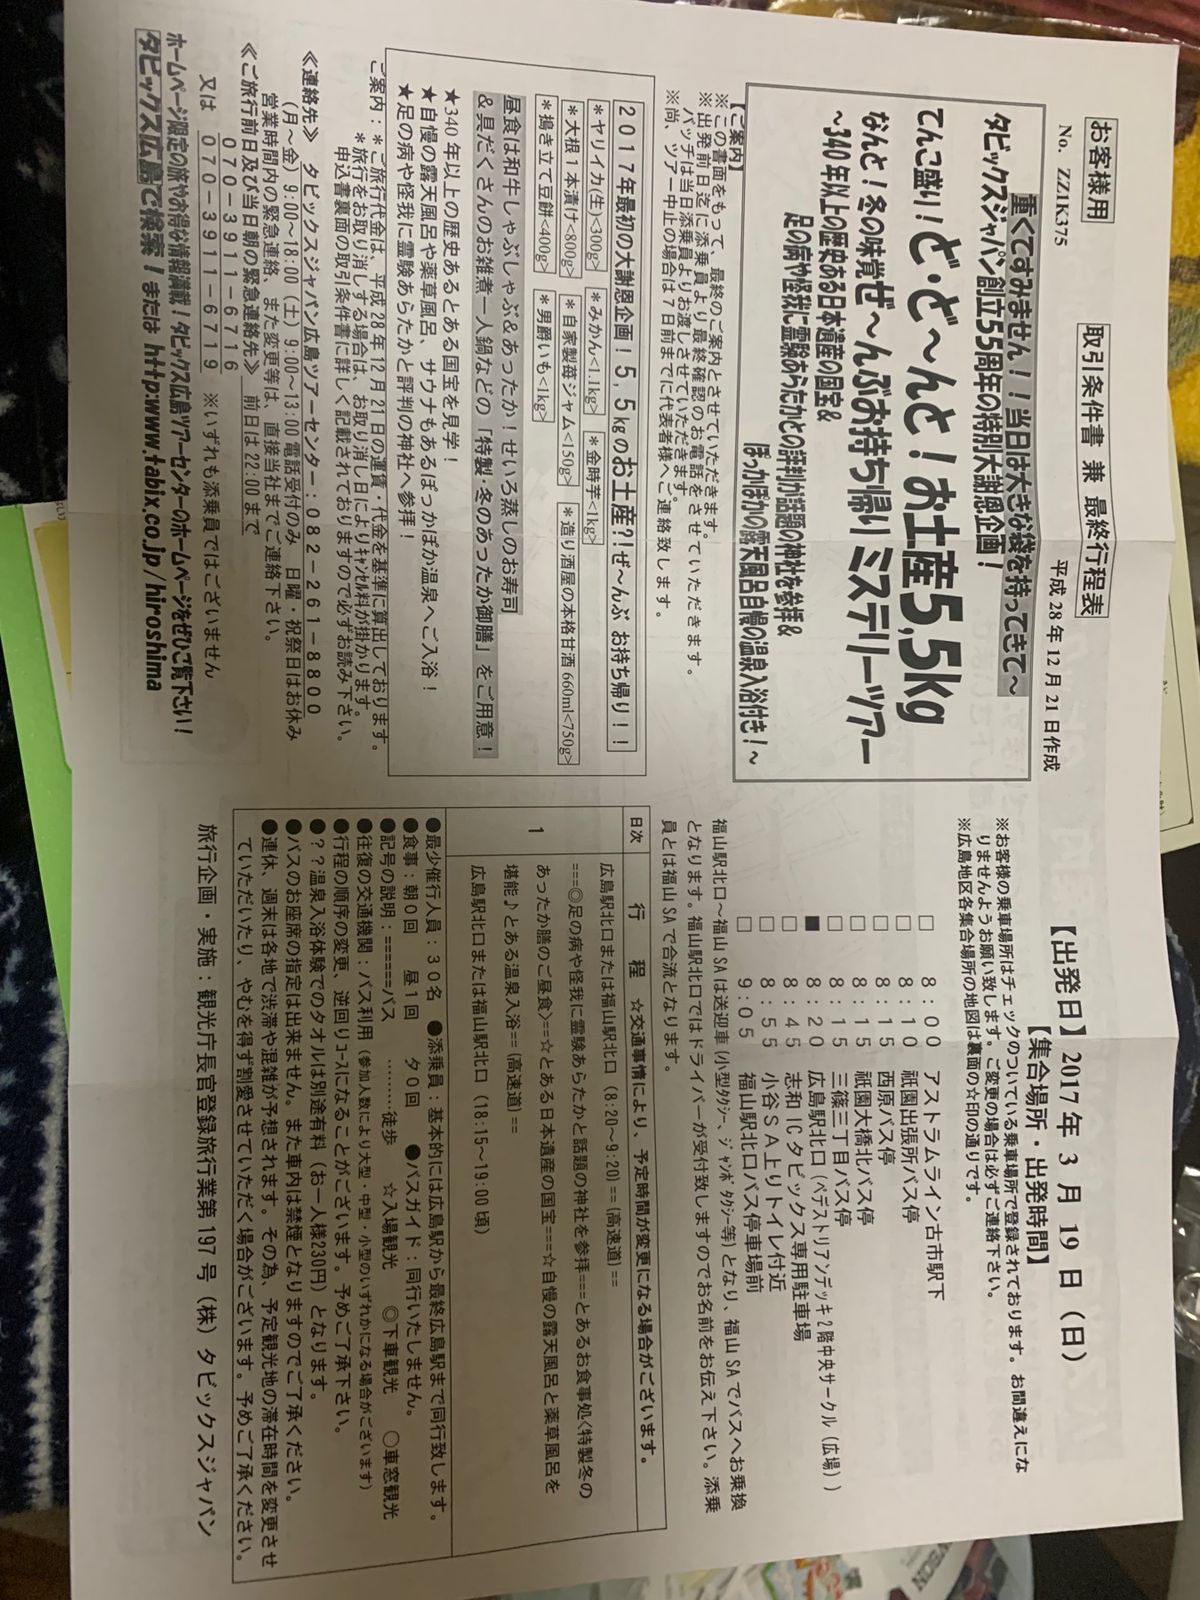 お客様用
取引条件書 兼 最終行程表
No. ZZ1K375
平成 28 年 12 月 21 日作成
重くてすみません！！当日は大きな袋を持ってきて～
タビックスジャパン創立55周年の特別大謝恩企画！
てんこ盛り！ど・ど～んと！お土産5,5kg
なんと！冬の味覚ぜ～んぶお持ち帰り ミステリーツアー
～340年以上の歴史ある日本遺産の国宝&
足の病や怪我に霊験あらたかとの評判が話題の神社を参拝&
ぽっかぽかの露天風呂自慢の温泉入浴付き！～
【ご案内】
※この書面をもって、最終のご案内とさせていただきます。
※出発前日迄に添乗員より最終確認のお電話をさせていただきます。
バッチは当日添乗員よりお渡しさせていただきます。
※尚、ツアー中止の場合は７日前までに代表者様へご連絡致します。
２０１７年最初の大謝恩企画！５,５㎏のお土産?!ぜ～んぶ お持ち帰り！！
＊ヤリイカ(生)<300g> ＊みかん<1.1kg> ＊金時芋<1kg>
＊大根１本漬け<800g> ＊自家製苺ジャム<150g> ＊造り酒屋の本格甘酒 660ml<750g>
＊搗き立て豆餅<400g> ＊男爵いも<1kg>
昼食は和牛しゃぶしゃぶ&あったか！せいろ蒸しのお寿司
&具だくさんのお雑煮一人鍋などの「特製・冬のあったか御膳」をご用意！
★340 年以上の歴史あるとある国宝を見学！
★自慢の露天風呂や薬草風呂、サウナもあるぽっかぽか温泉へご入浴！
★足の病や怪我に霊験あらたかと評判の神社へ参拝！
ご案内：＊ご旅行代金は、平成 28 年 12 月 21 日の運賃・代金を基準に算出しております。
＊旅行をお取り消しする場合は、お取り消し日によりｷｬﾝｾﾙ料が掛かります。
申込書裏面の取引条件書に詳しく記載されておりますので必ずお読み下さい。
≪連絡先≫ タビックスジャパン広島ツアーセンター：０８２－２６１－８８００
（月～金）9:00～18:00（土）9:00～13:00 電話受付のみ 日曜・祝祭日はお休み
営業時間内の緊急連絡、また変更等は、直接当社までご連絡下さい。
≪ご旅行前日及び当日朝の緊急連絡先≫ 前日は 22:00 まで
０７０－３９１１－６７１６
又は ０７０－３９１１－６７１９ ※いずれも添乗員ではございません
ホームページ限定の旅やお得な情報満載！タビックス広島ツアーセンターのホームページをぜひご覧下さい！
タビックス広島で検索！または http:www.tabix.co.jp/hiroshima
【出発日】2017 年 3 月 19 日（日）
【集合場所・出発時間】
※お客様の乗車場所はチェックのついている乗車場所で登録されております。お間違えにな
りませんようお願い致します。ご変更の場合は必ずご連絡下さい。
※広島地区各集合場所の地図は裏面の☆印の通りです。
□ ８：００ アストラムライン古市駅下
□ ８：１０ 祇園出張所バス停
□ ８：１５ 西原バス停
□ ８：１５ 祇園大橋北バス停
□ ８：１５ 三篠三丁目バス停
■ ８：２０ 広島駅北口（ペデストリアンデッキ２階中央サークル（広場））
□ ８：４５ 志和ICタビックス専用駐車場
□ ８：５５ 小谷ＳＡ上りトイレ付近
□ ９：０５ 福山駅北口バス停車場前
福山駅北口～福山 SA は送迎車（小型ﾀｸｼｰ、ｼﾞｬﾝﾎﾞﾀｸｼｰ等）となり、福山 SA でバスへお乗換
となります。福山駅北口ではドライバーが受付致しますのでお名前をお伝え下さい。添乗
員とは福山 SA で合流となります。
日次 行 程 ☆交通事情により、予定時間が変更になる場合がございます。
1
広島駅北口または福山駅北口（8:20～9:20）==（高速道）==
===◎足の病や怪我に霊験あらたかと話題の神社を参拝===とあるお食事処〈特製冬の
あったか膳のご昼食〉==☆とある日本遺産の国宝===☆自慢の露天風呂と薬草風呂を
堪能♪とある温泉入浴==（高速道）==
広島駅北口または福山駅北口（18:15～19:00 頃）
●最少催行人員：３０名 ●添乗員：基本的には広島駅から最終広島駅まで同行致します。
●食事：朝０回 昼１回 夕０回 ●バスガイド：同行いたしません。
●記号の説明：======バス ………徒歩 ☆入場観光 ◎下車観光 ○車窓観光
●往復の交通機関：バス利用（参加人数により大型・中型・小型のいずれかになる場合がございます）
●行程の順序の変更、逆回りｺｰｽになることがございます。予めご了承下さい。
●？？温泉入浴体験でのタオルは別途有料（お一人様230円）となります。
●バスのお座席の指定は出来ません。また車内は禁煙となりますのでご了承ください。
●連休、週末は各地で渋滞や混雑が予想されます。その為、予定観光地の滞在時間を変更させ
ていただいたり、やむを得ず割愛させていただく場合がございます。予めご了承ください。
旅行企画・実施：観光庁長官登録旅行業第 197 号（株）タビックスジャパン